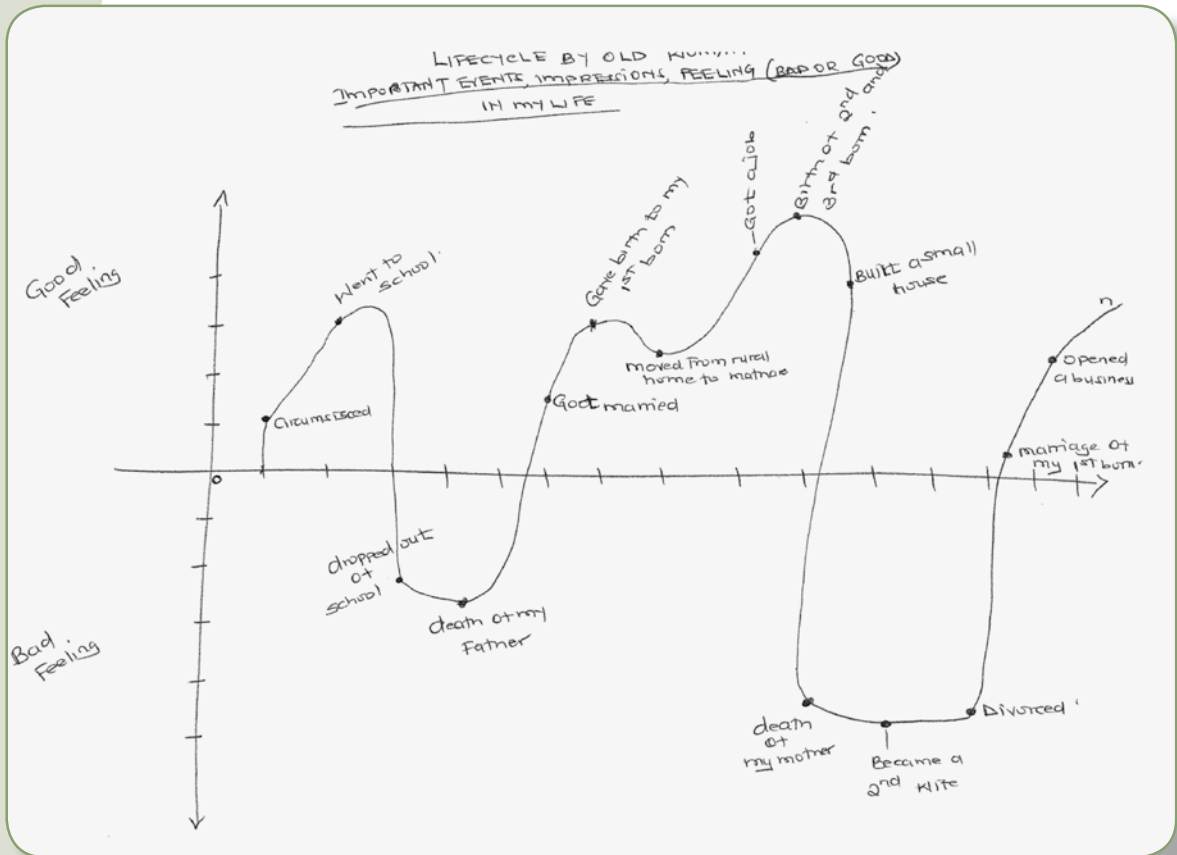 LIFECYCLE BY OLD
IMPORTANT EVENTS, IMPRESSIONS, FEELING (BAD OR GOOD)
IN MY LIFE
Good
Feeling
Bad
Feeling
0
Circumsised
Went to
school.
dropped out
of
school
death of my
Father
Goot married
Gave birth to my
1ST born
moved From rural
home to
Got a job
Birth of 2nd and
3rd born.
Built a small
house
death
of
my mother
Became a
2nd Wife
Divorced
marriage of
my 1ST born.
opened
a business
n